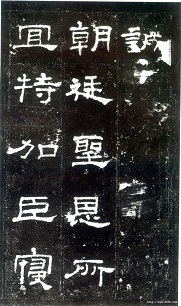 誠
朝廷聖恩所
宜特加臣寑